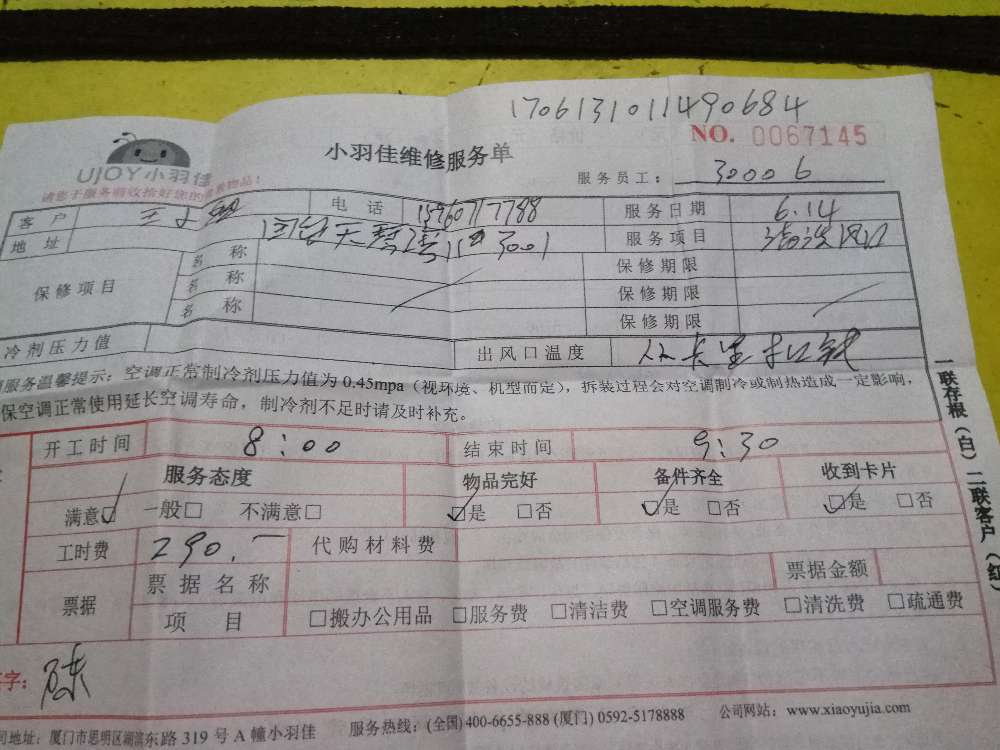 1706131011490684
小羽佳维修服务单
NO. 0067145
UJOY小羽佳
请您于服务前收拾好您的贵重物品!
服务员工: 30006
客户 电话 15960717788 服务日期 6.14
地址 3001 服务项目 清洗风口
保修项目 名称 保修期限
名称 保修期限
名称 保修期限
冷剂压力值 出风口温度
服务温馨提示: 空调正常制冷剂压力值为 0.45mpa (视环境、机型而定), 拆装过程会对空调制冷或制热造成一定影响,
保空调正常使用延长空调寿命, 制冷剂不足时请及时补充。
一联存根(白) 二联客户(红)
开工时间 8:00 结束时间 9:30
服务态度 物品完好 备件齐全 收到卡片
满意☑ 一般□ 不满意□ ☑是 □否 ☑是 □否 ☑是 □否
工时费 290.- 代购材料费
票据 票据名称 票据金额
项目 □搬办公用品 □服务费 □清洁费 □空调服务费 □清洗费 □疏通费
字: 陈
地址: 厦门市思明区湖滨东路 319 号 A 幢小羽佳 服务热线: (全国) 400-6655-888 (厦门) 0592-5178888 公司网站: www.xiaoyujia.com